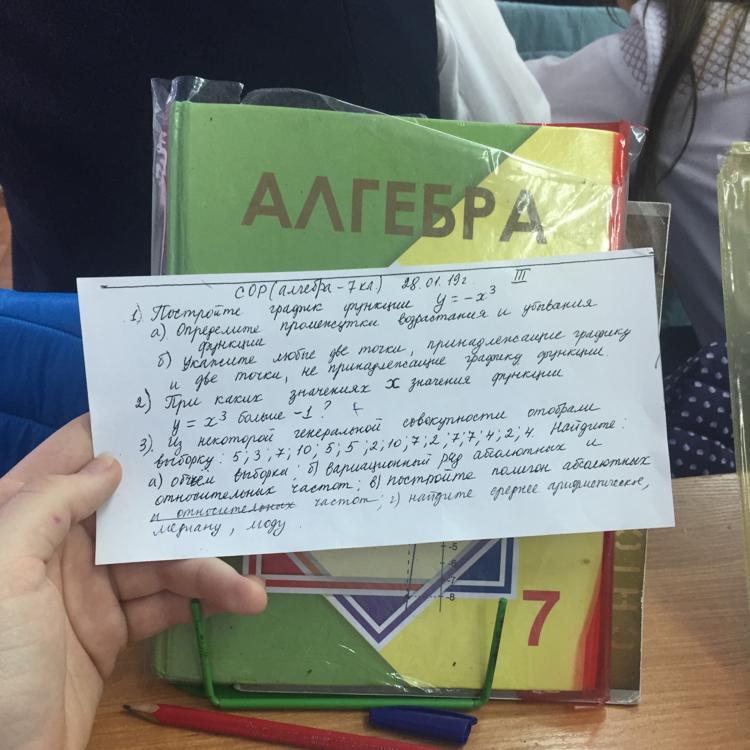 АЛГЕБРА
СОР (алгебра - 7 кл.) 28.01.19г. III
1) Постройте график функции y = -x³
а) Определите промежутки возрастания и убывания
функции
б) Укажите любые две точки, принадлежащие графику
и две точки, не принадлежащие графику функции.
2) При каких значениях x значения функции
y = x³ больше -1?
3). Из некоторой генеральной совокупности отобрали
выборку: 5; 3; 7; 10; 5; 5; 2; 10; 7; 2; 7; 7; 4; 2; 4. Найдите:
а) объем выборки; б) вариационный ряд абсолютных и
относительных частот; в) постройте полигон абсолютных
и относительных частот; г) найдите среднее арифметическое,
медиану, моду.
-5
-6
-7
-8
7